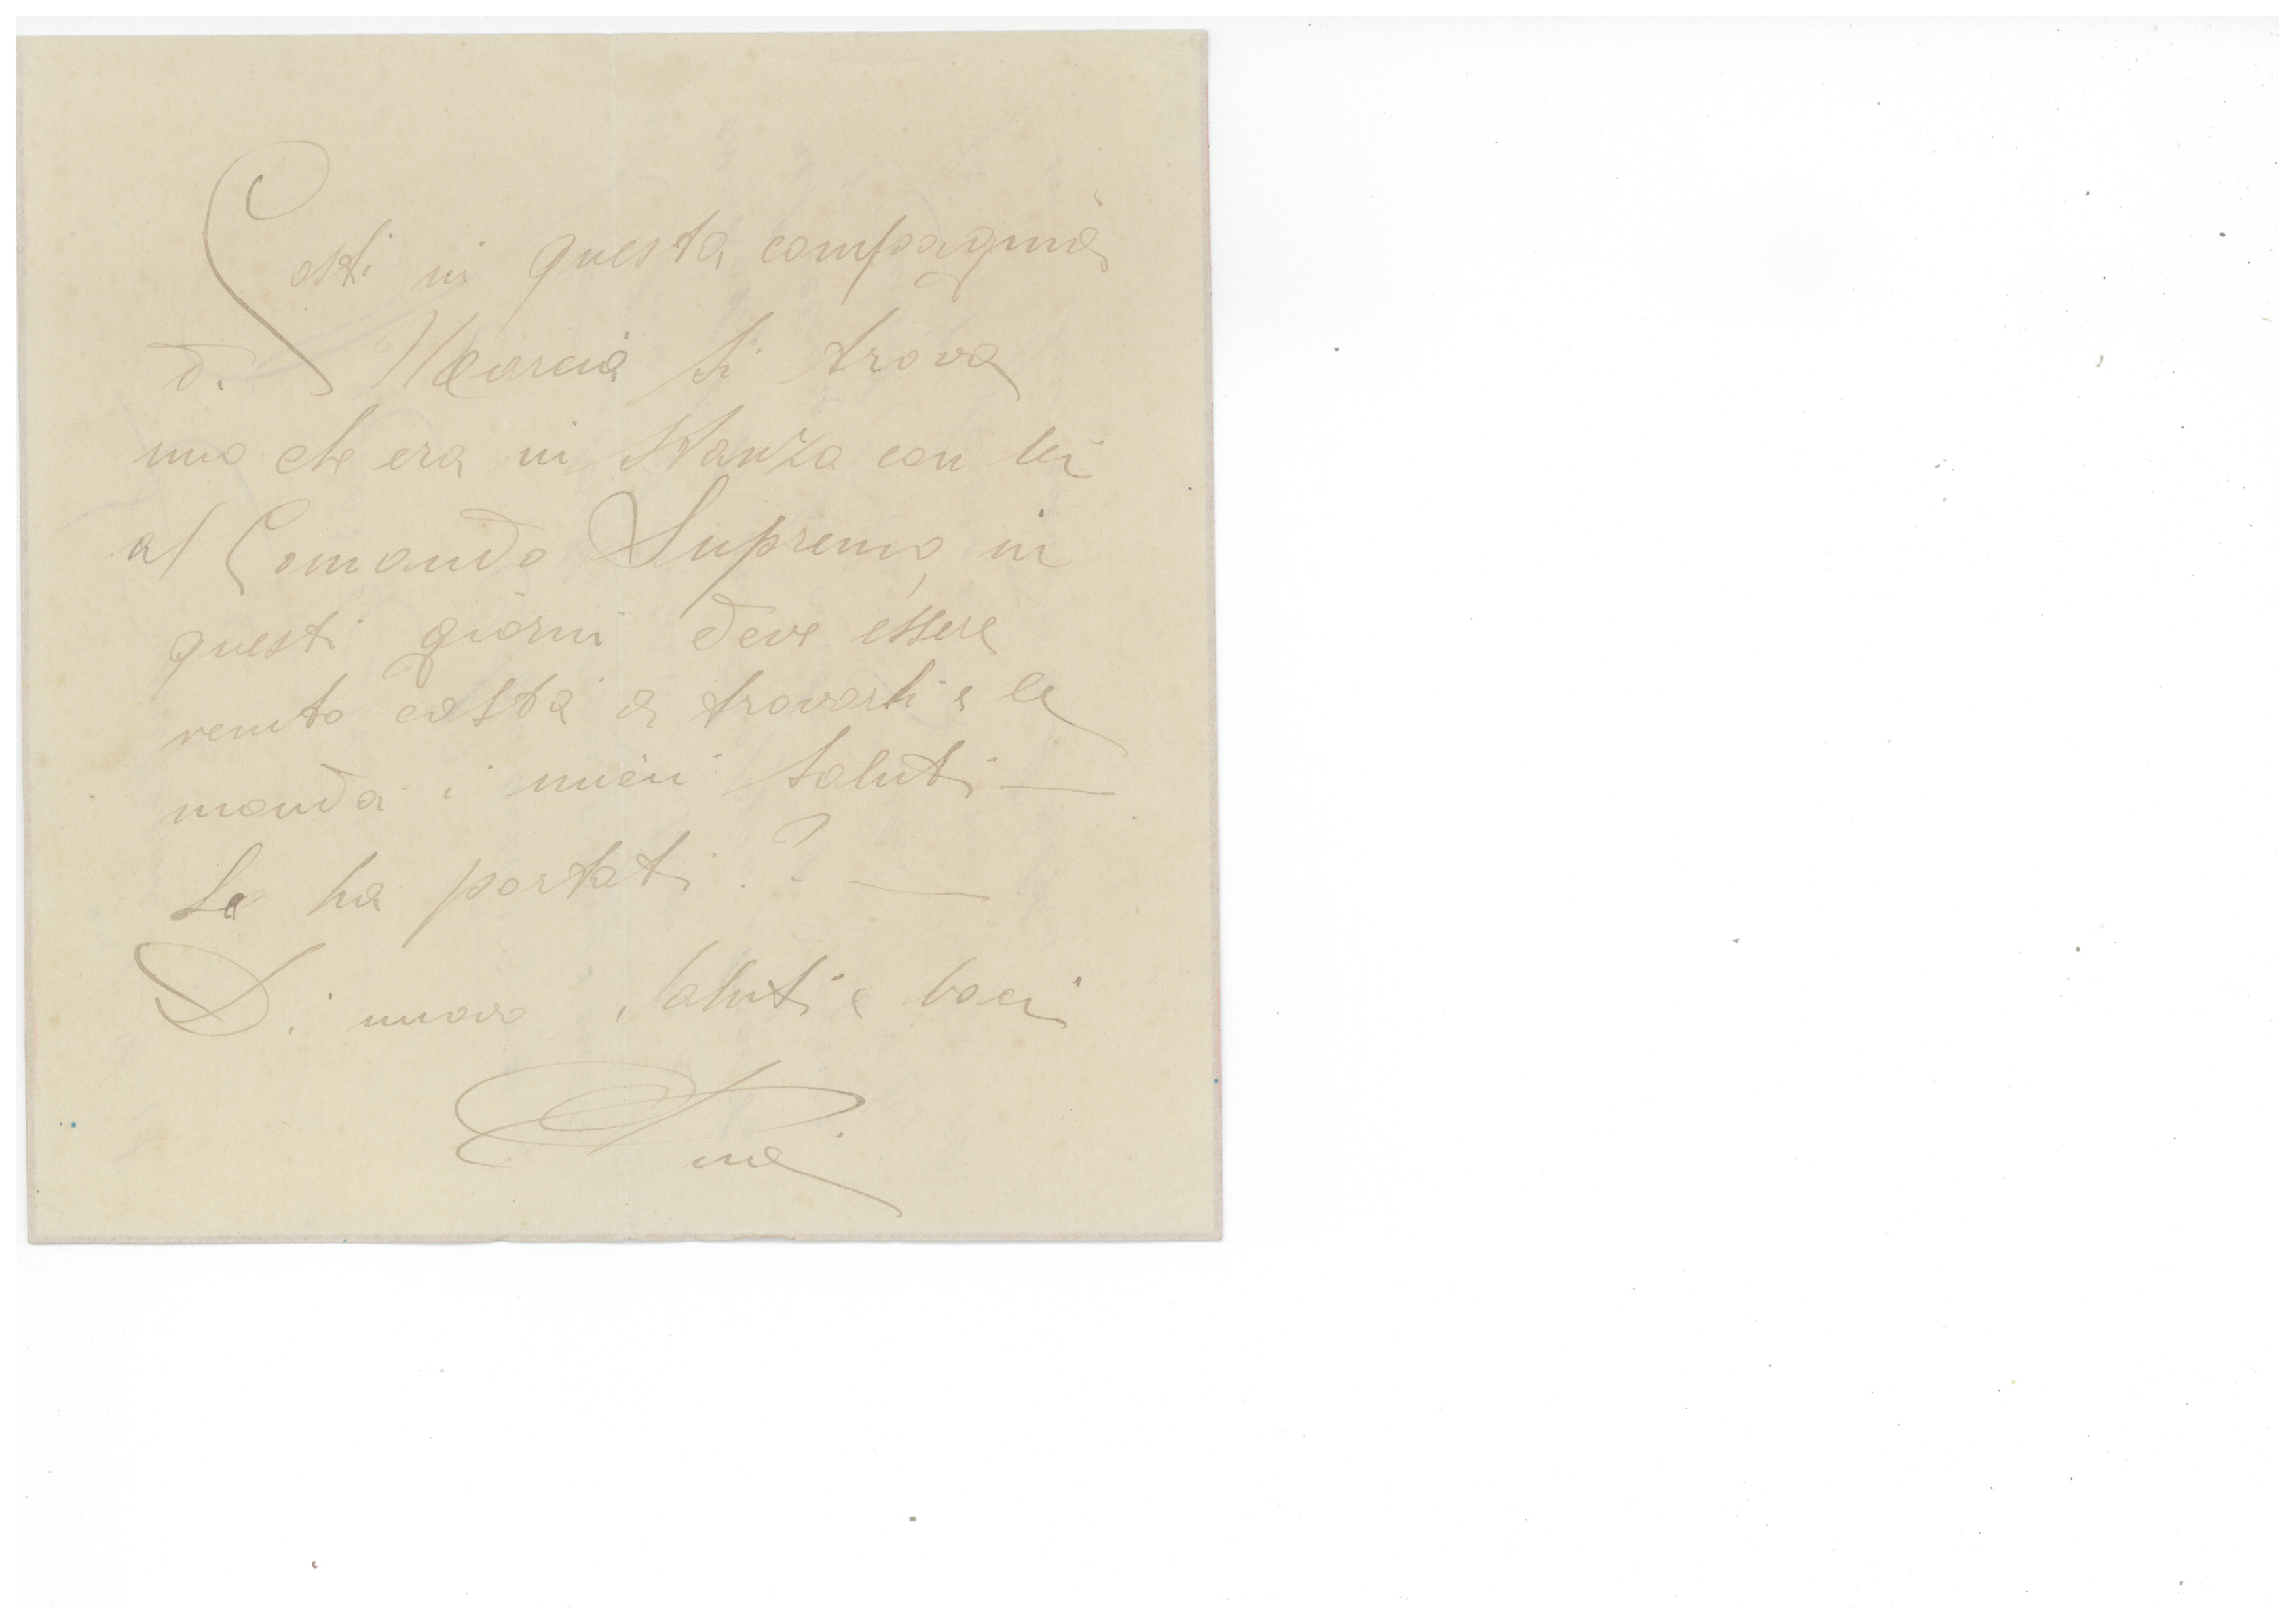 Costi in questa compagnia
di Marcia si trova
uno che era in stanza con lei
al Comando Supremo, in
questi giorni deve essere
venuto costà a trovarti e le
mandai i miei saluti —
Le ha portati? —
Di nuovo saluti e baci